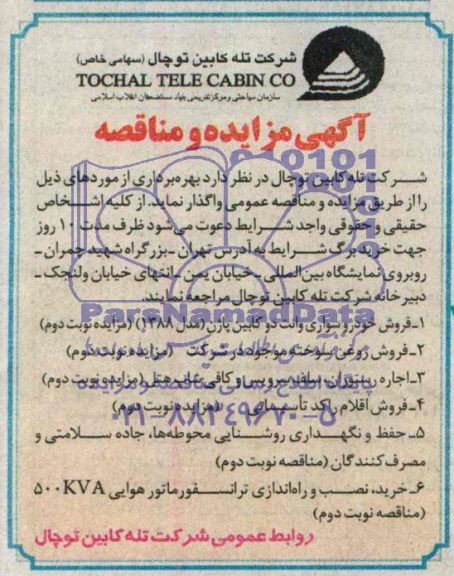 شرکت تله کابین توچال (سهامی خاص)
TOCHAL TELE CABIN CO
سازمان سیاحتی و مرکز تفریحی بنیاد مستضعفان انقلاب اسلامی
آگهی مزایده و مناقصه
شرکت تله کابین توچال در نظر دارد بهره‌برداری از موردهای ذیل
را از طریق مزایده و مناقصه عمومی واگذار نماید. از کلیه اشخاص
حقیقی و حقوقی واجد شرایط دعوت می‌شود ظرف مدت ۱۰ روز
جهت خرید برگ شرایط به آدرس تهران ـ بزرگراه شهید چمران ـ
روبروی نمایشگاه بین‌المللی ـ خیابان یمن ـ انتهای خیابان ولنجک ـ
دبیرخانه شرکت تله کابین توچال مراجعه نمایند.
ParsNamadData
۱ـ فروش خودرو سواری وانت دو کابین پاژن (مدل ۱۳۸۸) (مزایده نوبت دوم)
۲ـ فروش روغن سوخته موجود در شرکت (مزایده نوبت دوم)
۳ـ اجاره رستوران، سلف سرویس و کافی شاپ هتل (مزایده نوبت دوم)
۴ـ فروش اقلام راکد تأسیساتی (مزایده نوبت دوم)
۰۲۱-۸۸۳۴۹۶۷۰-۵
۵ـ حفظ و نگهداری روشنایی محوطه‌ها، جاده سلامتی و
مصرف کنندگان (مناقصه نوبت دوم)
۶ـ خرید، نصب و راه‌اندازی ترانسفورماتور هوایی ۵۰۰KVA
(مناقصه نوبت دوم)
روابط عمومی شرکت تله کابین توچال